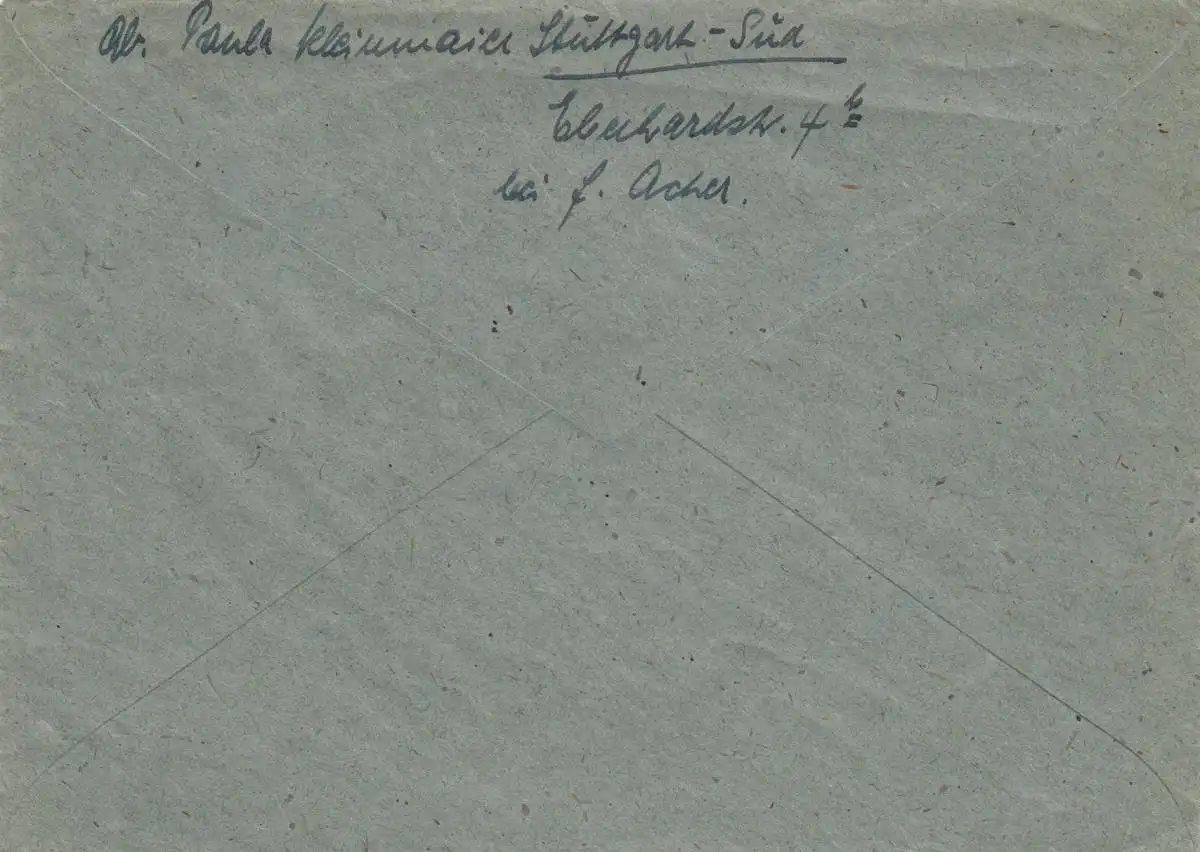 Ab. Paula Kleinmaier Stuttgart-Süd
Eberhardstr. 4 b
bei f. Acher.